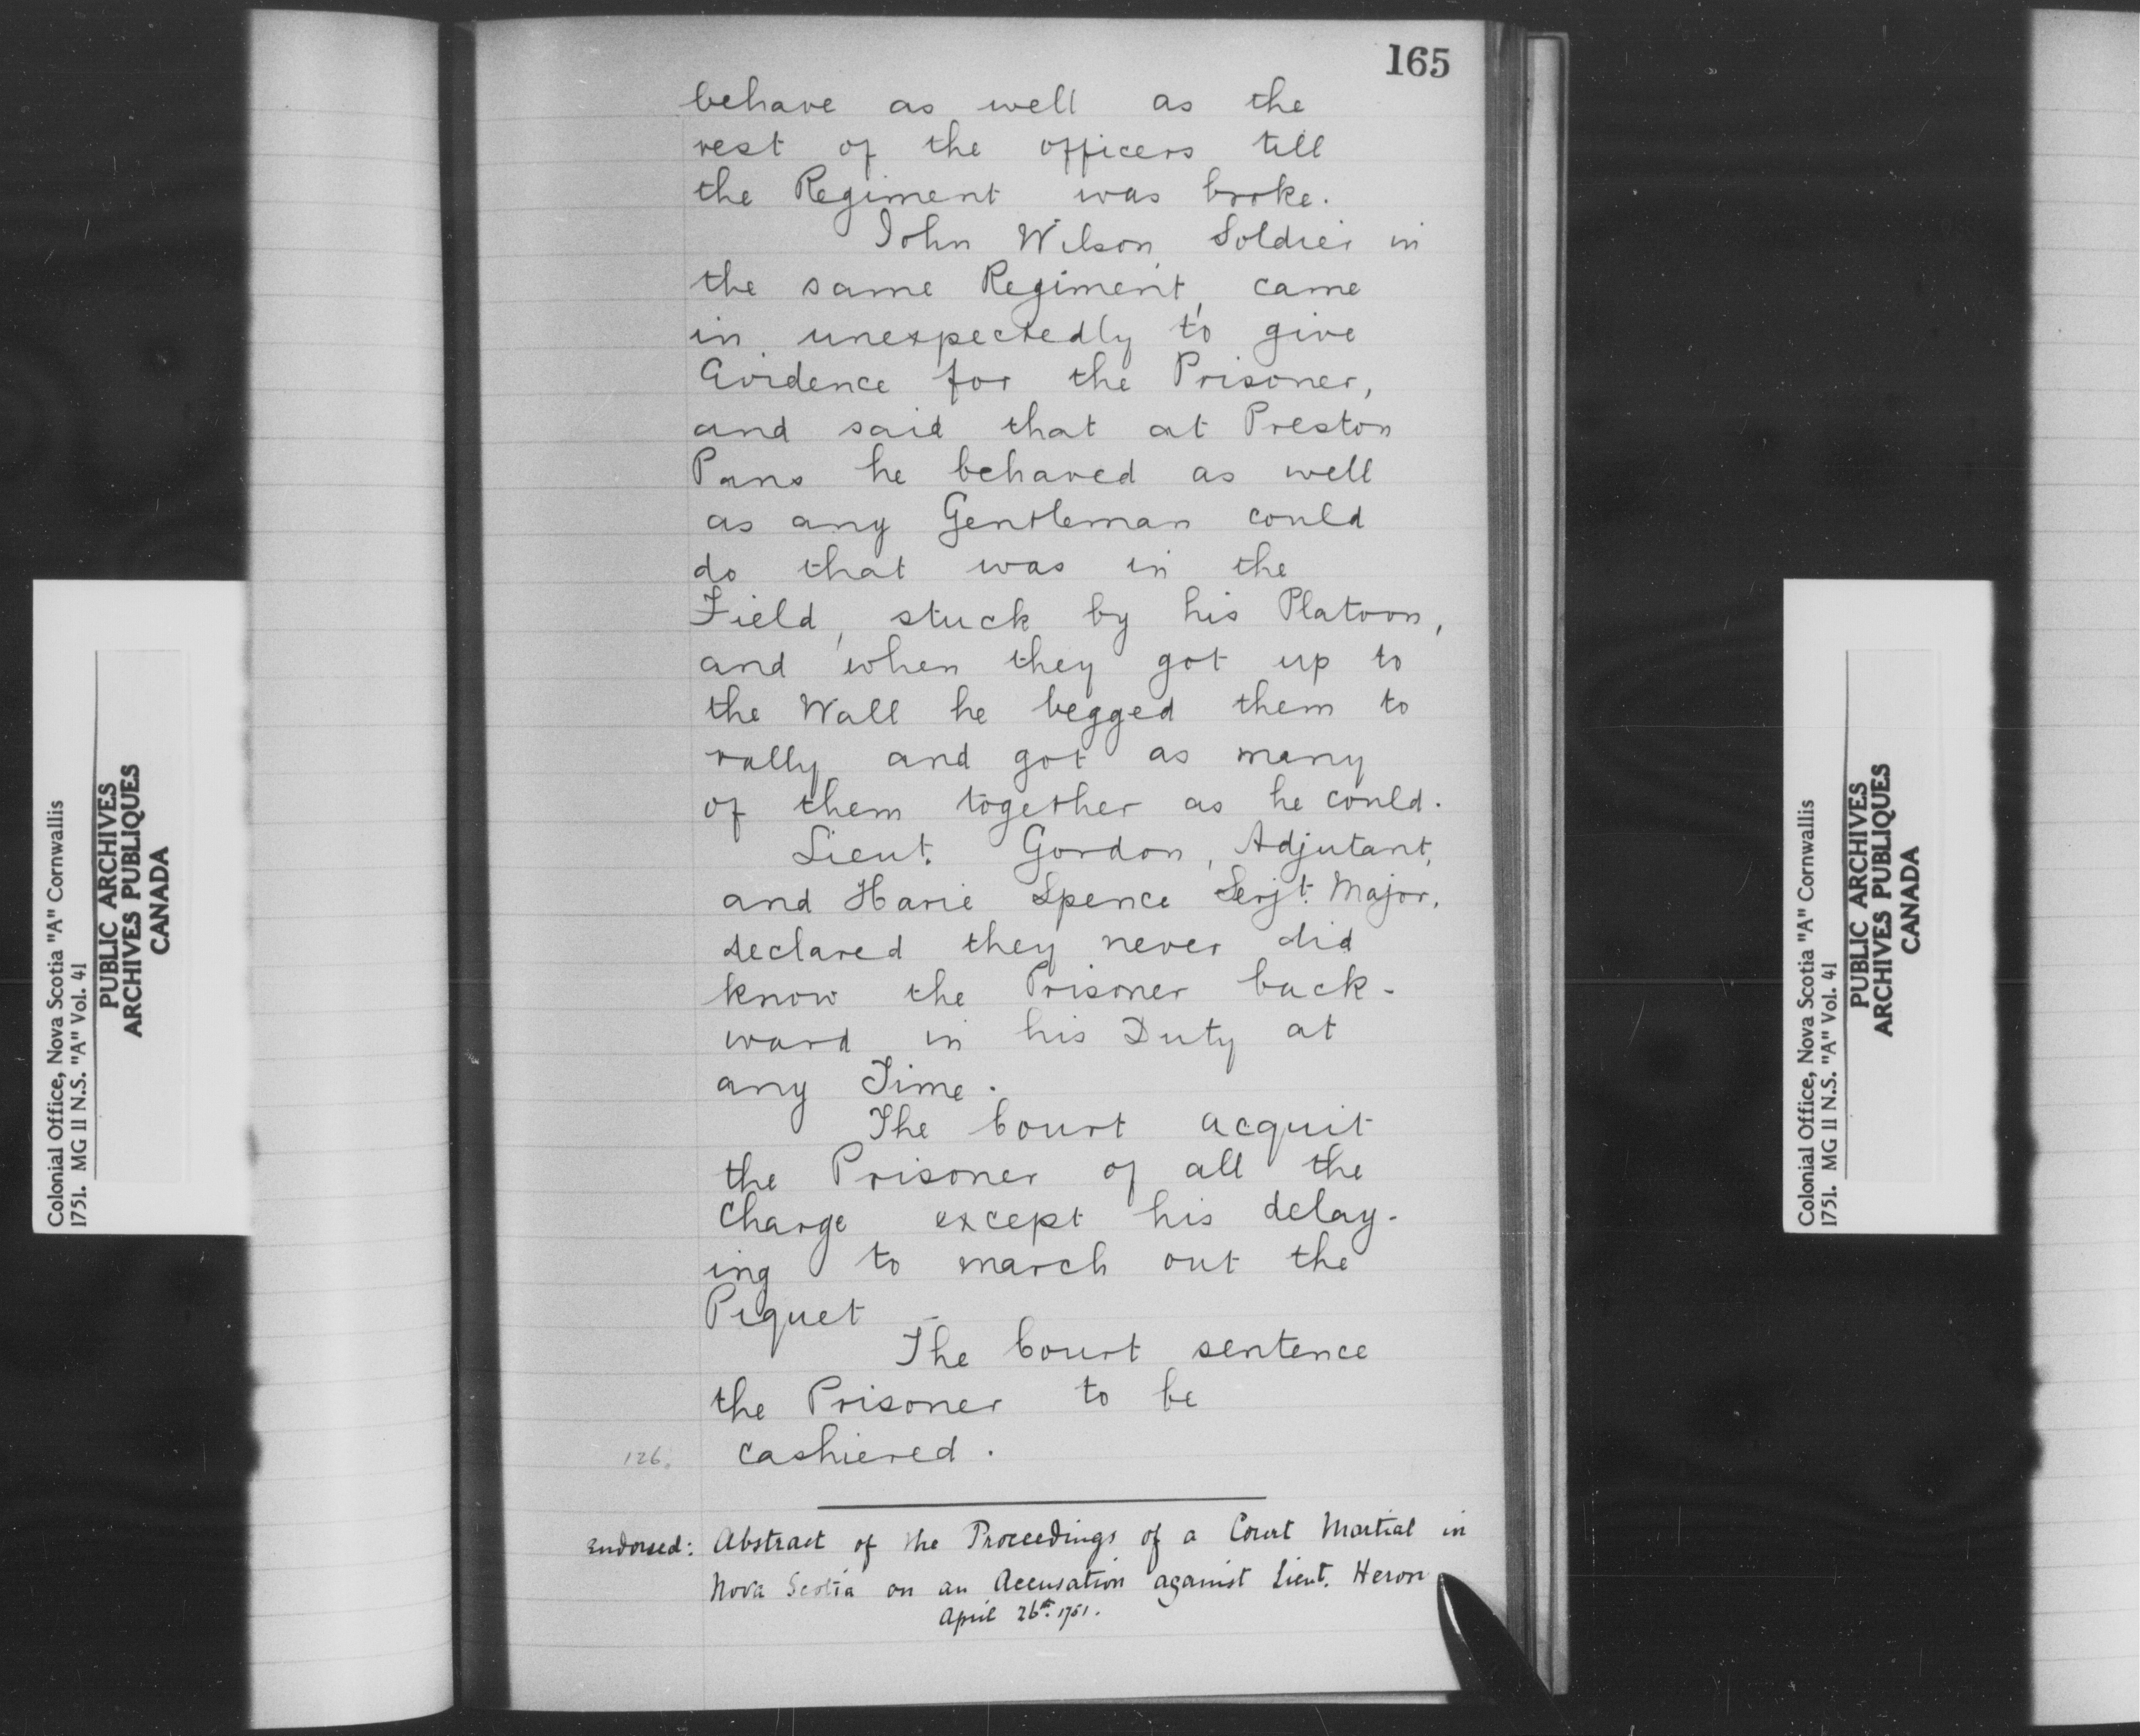 165
behave as well as the
rest of the officers till
the Regiment was broke.
John Wilson, Soldier in
the same Regiment, came
in unexpectedly to give
Evidence for the Prisoner,
and said that at Preston
Pans he behaved as well
as any Gentleman could
do that was in the
Field, stuck by his Platoon,
and when they got up to
the Wall he begged them to
rally and got as many
of them together as he could.
Lieut. Gordon, Adjutant,
and Harie Spence Serjt. Major,
declared they never did
know the Prisoner back-
ward in his Duty at
any Time.
The Court acquit
the Prisoner of all the
Charge except his delay-
ing to march out the
Piquet
The Court sentence
the Prisoner to be
126. cashiered.
Endorsed: Abstract of the Proceedings of a Court Martial in
Nova Scotia on an Accusation against Lieut. Heron
April 26th. 1751.
Colonial Office, Nova Scotia "A" Cornwallis
1751. MG 11 N.S. "A" Vol. 41
PUBLIC ARCHIVES
ARCHIVES PUBLIQUES
CANADA
Colonial Office, Nova Scotia "A" Cornwallis
1751. MG 11 N.S. "A" Vol. 41
PUBLIC ARCHIVES
ARCHIVES PUBLIQUES
CANADA